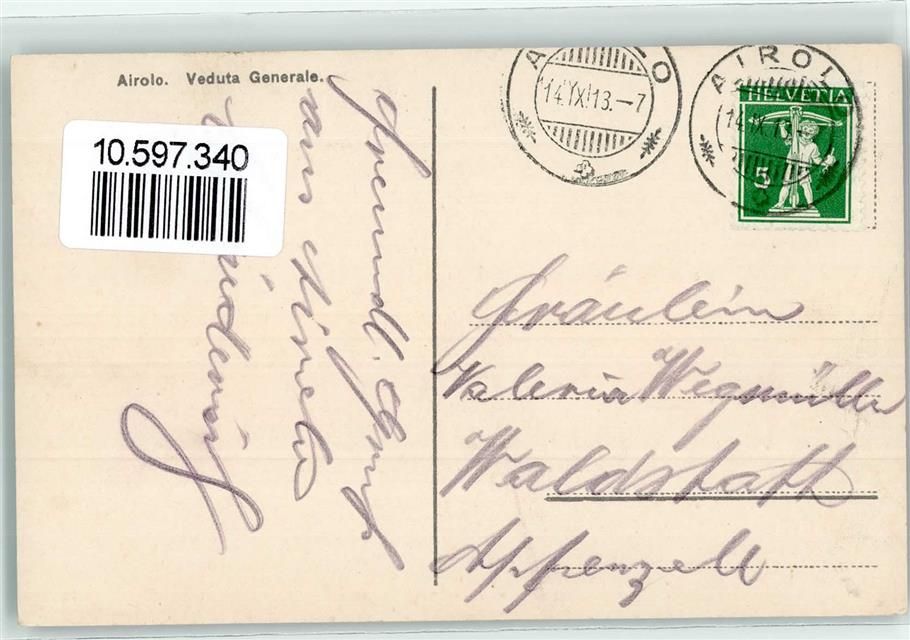 Airolo. Veduta Generale.
10.597.340
AIROLO
14.IX.13.–7
AIROLO
14.IX.13
HELVETIA
5
Freundl. Grüsse
aus Airolo
Fräulein
Valeria Wegmüller
Waldstatt
Appenzell